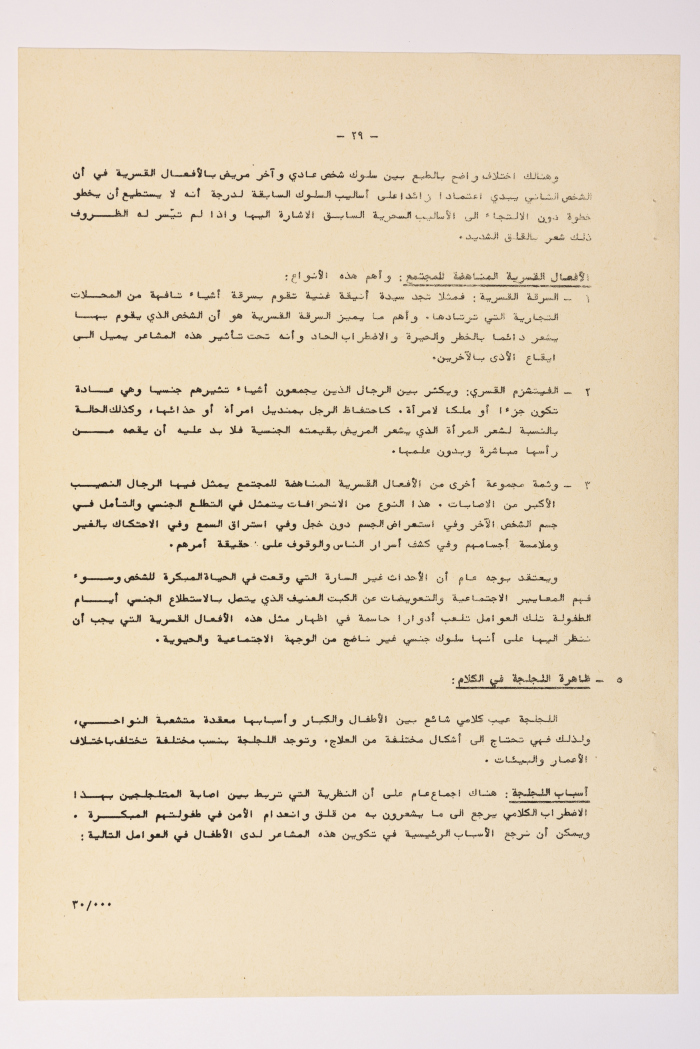 – ٢٩ –
وهنالك اختلاف واضح بالطبع بين سلوك شخص عادي وآخر مريض بالأفعال القسرية في أن
الشخص الثاني يبدي اعتمادا زائدا على أساليب السلوك السابقة لدرجة أنه لا يستطيع أن يخطو
خطوة دون الالتجاء الى الأساليب السحرية السابق الاشارة اليها واذا لم تيّسر له الظروف
ذلك شعر بالقلق الشديد.
الأفعال القسرية المناهضة للمجتمع : وأهم هذه الأنواع :
١ – السرقة القسرية : فمثلا نجد سيدة أنيقة غنية تقوم بسرقة أشياء تافهة من المحلات
التجارية التي ترتادها. وأهم ما يميز السرقة القسرية هو أن الشخص الذي يقوم بها
يشعر دائما بالخطر والحيرة والاضطراب الحاد وأنه تحت تأثير هذه المشاعر يميل الى
ايقاع الأذى بالآخرين.
٢ – الفيتشزم القسري: ويكثر بين الرجال الذين يجمعون أشياء تثيرهم جنسيا وهي عادة
تكون جزءا أو ملكا لامرأة. كاحتفاظ الرجل بمنديل امرأة أو حذائها، وكذلك الحالة
بالنسبة لشعر المرأة الذي يشعر المريض بقيمته الجنسية فلا بد عليه أن يقصه من
رأسها مباشرة وبدون علمها.
٣ – وثمة مجموعة أخرى من الأفعال القسرية المناهضة للمجتمع يمثل فيها الرجال النصيب
الأكبر من الاصابات . هذا النوع من الانحرافات يتمثل في التطلع الجنسي والتأمل في
جسم الشخص الآخر وفي استعراض الجسم دون خجل وفي استراق السمع وفي الاحتكاك بالغير
وملامسة أجسامهم وفي كشف أسرار الناس والوقوف على حقيقة أمرهم.
ويعتقد بوجه عام أن الأحداث غير السارة التي وقعت في الحياة المبكرة للشخص وسوء
فهم المعايير الاجتماعية والتعويضات عن الكبت العنيف الذي يتصل بالاستطلاع الجنسي أيام
الطفولة تلك العوامل تلعب أدوارا حاسمة في اظهار مثل هذه الأفعال القسرية التي يجب أن
ننظر اليها على أنها سلوك جنسي غير ناضج من الوجهة الاجتماعية والحيوية.
٥ – ظاهرة اللجلجة في الكلام :
اللجلجة عيب كلامي شائع بين الأطفال والكبار وأسبابها معقدة متشعبة النواحي،
ولذلك فهي تحتاج الى أشكال مختلفة من العلاج. وتوجد اللجلجة بنسب مختلفة تختلف باختلاف
الأعمار والبيئات .
أسباب اللجلجة : هناك اجماع عام على أن النظرية التي تربط بين اصابة المتلجلجين بهذا
الاضطراب الكلامي يرجع الى ما يشعرون به من قلق وانعدام الأمن في طفولتهم المبكرة .
ويمكن أن نرجع الأسباب الرئيسية في تكوين هذه المشاعر لدى الأطفال في العوامل التالية :
٣٠/٠٠٠